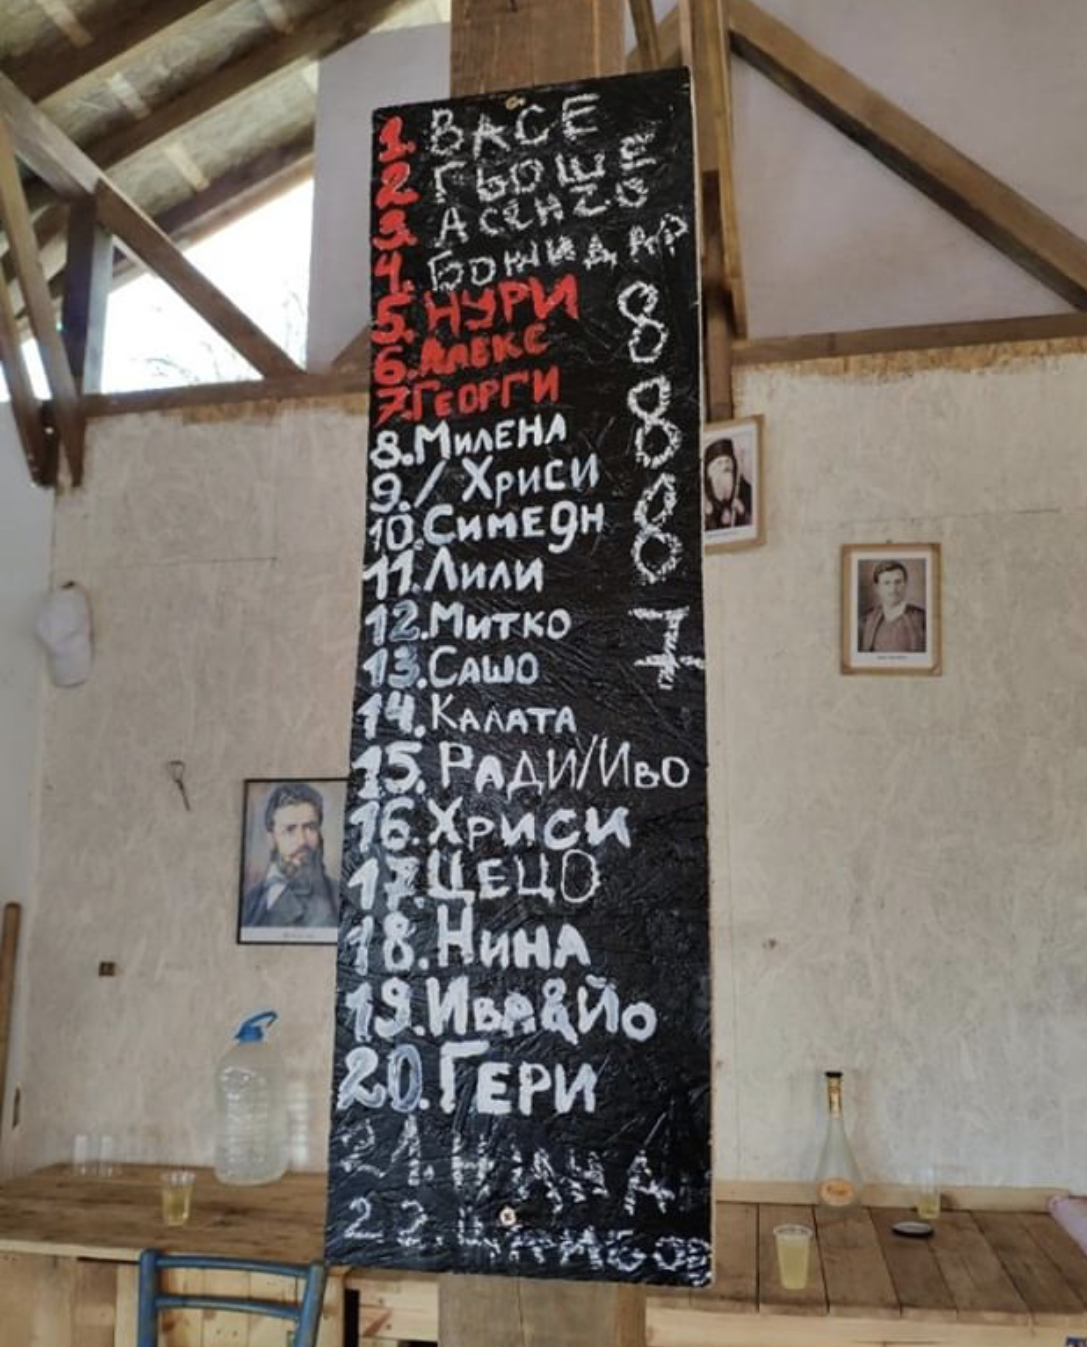 1. ВАСЕ
2 ГЬОШЕ
3. АСЕНЗО
4. БОЖИДАР
5. НУРИ 8
6. АЛЕКС
7. ГЕОРГИ 8
8. МИЛЕНА
9. / ХРИСИ 8
10. СИМЕОН
11. ЛИЛИ
12. МИТКО 7
13. САШО
14. КАЛАТА
15. РАДИ/ИВО
16. ХРИСИ
17. ЦЕЦО
18. НИНА
19. ИВА&ЙО
20. ГЕРИ
21. НАНА
22.